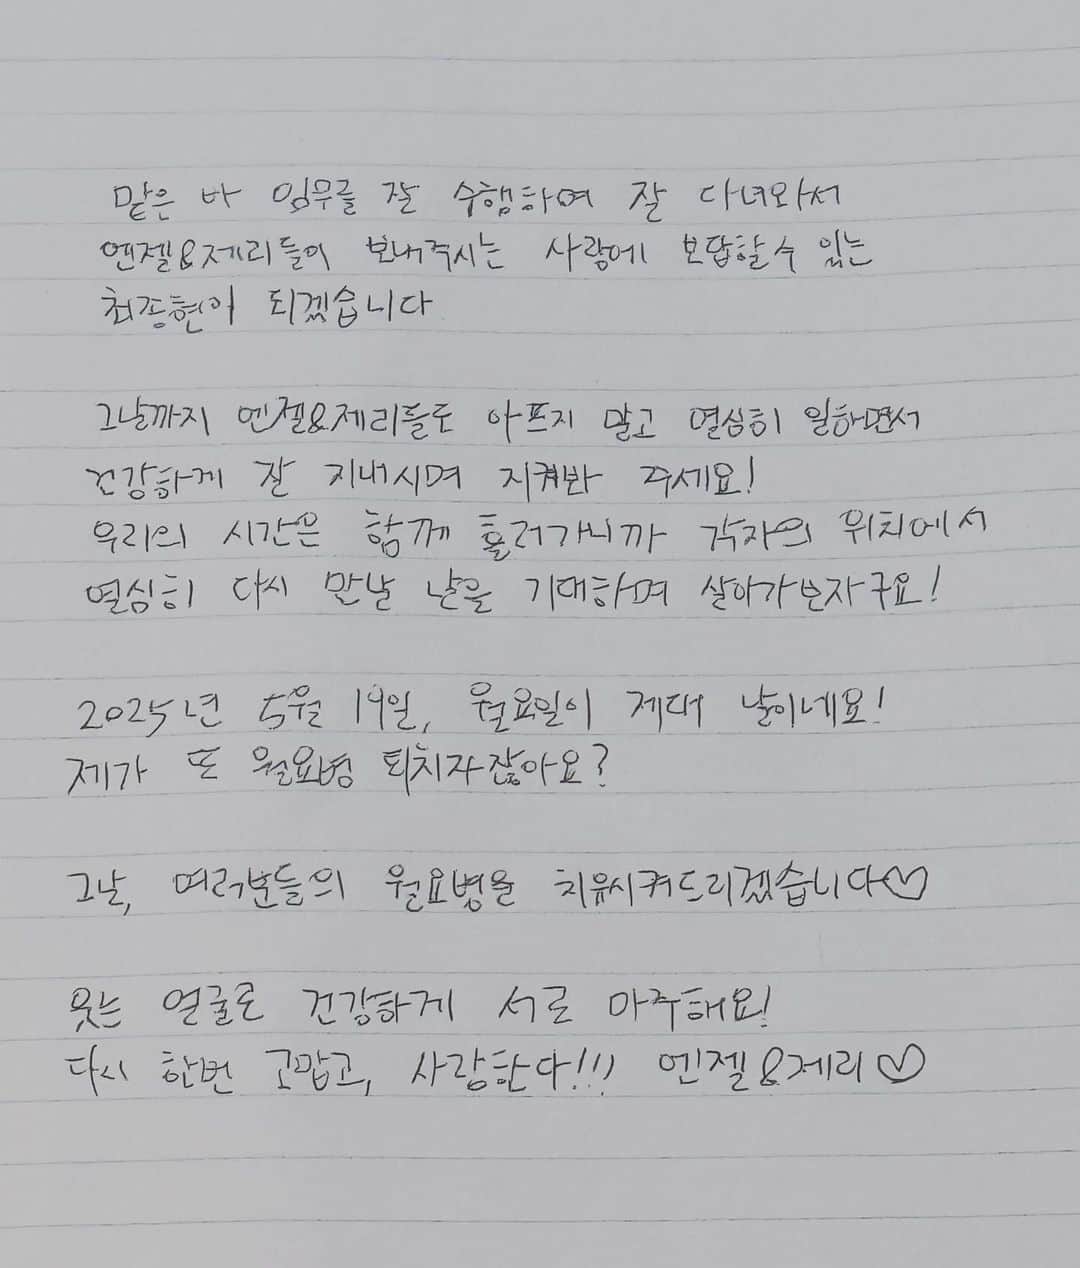 맡은 바 임무를 잘 수행하여 잘 다녀와서
엔젤&제리들이 보내주시는 사랑에 보답할 수 있는
최종현이 되겠습니다
그날까지 엔젤&제리들도 아프지 말고 열심히 일하면서
건강하게 잘 지내시며 지켜봐 주세요!
우리의 시간은 함께 흘러가니까 각자의 위치에서
열심히 다시 만날 날을 기대하며 살아가보자구요!
2025년 5월 19일, 월요일이 제대 날이네요!
제가 또 월요병 퇴치자잖아요?
그날, 여러분들의 월요병을 치유시켜드리겠습니다♡
웃는 얼굴로 건강하게 서로 마주해요!
다시 한번 고맙고, 사랑한다!!! 엔젤&제리♡